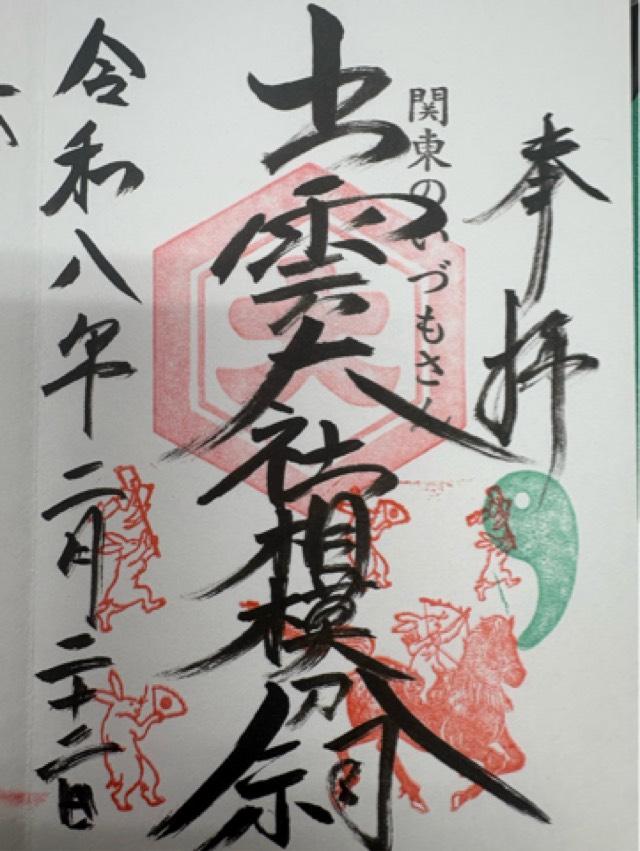 奉拝
関東のいづもさん
出雲大社相模分祠
令和八年二月二十二日